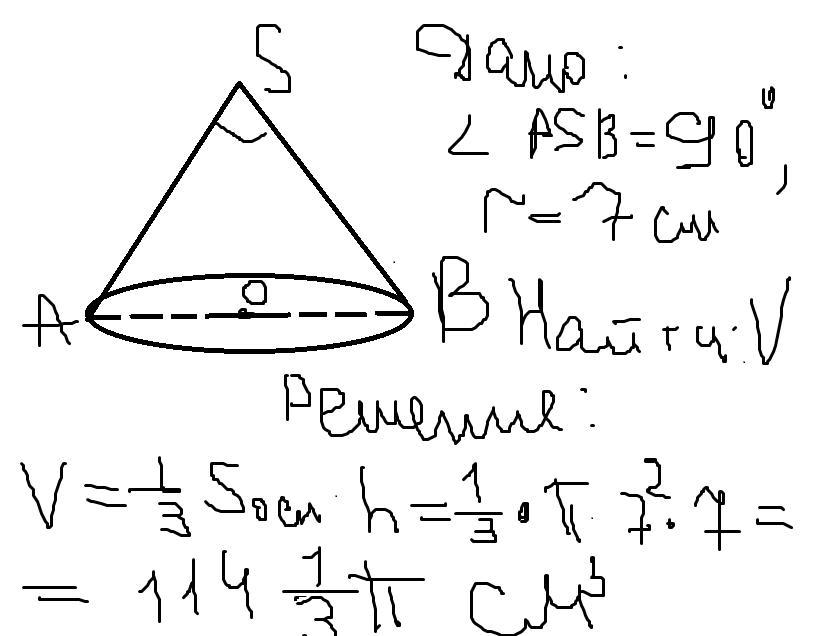 S
Дано:
∠ ASB = 90°,
r = 7 см
A O B
Найти: V
Решение:
V = 1/3 Sосн · h = 1/3 · π · 7² · 7 =
= 114 1/3 π см³